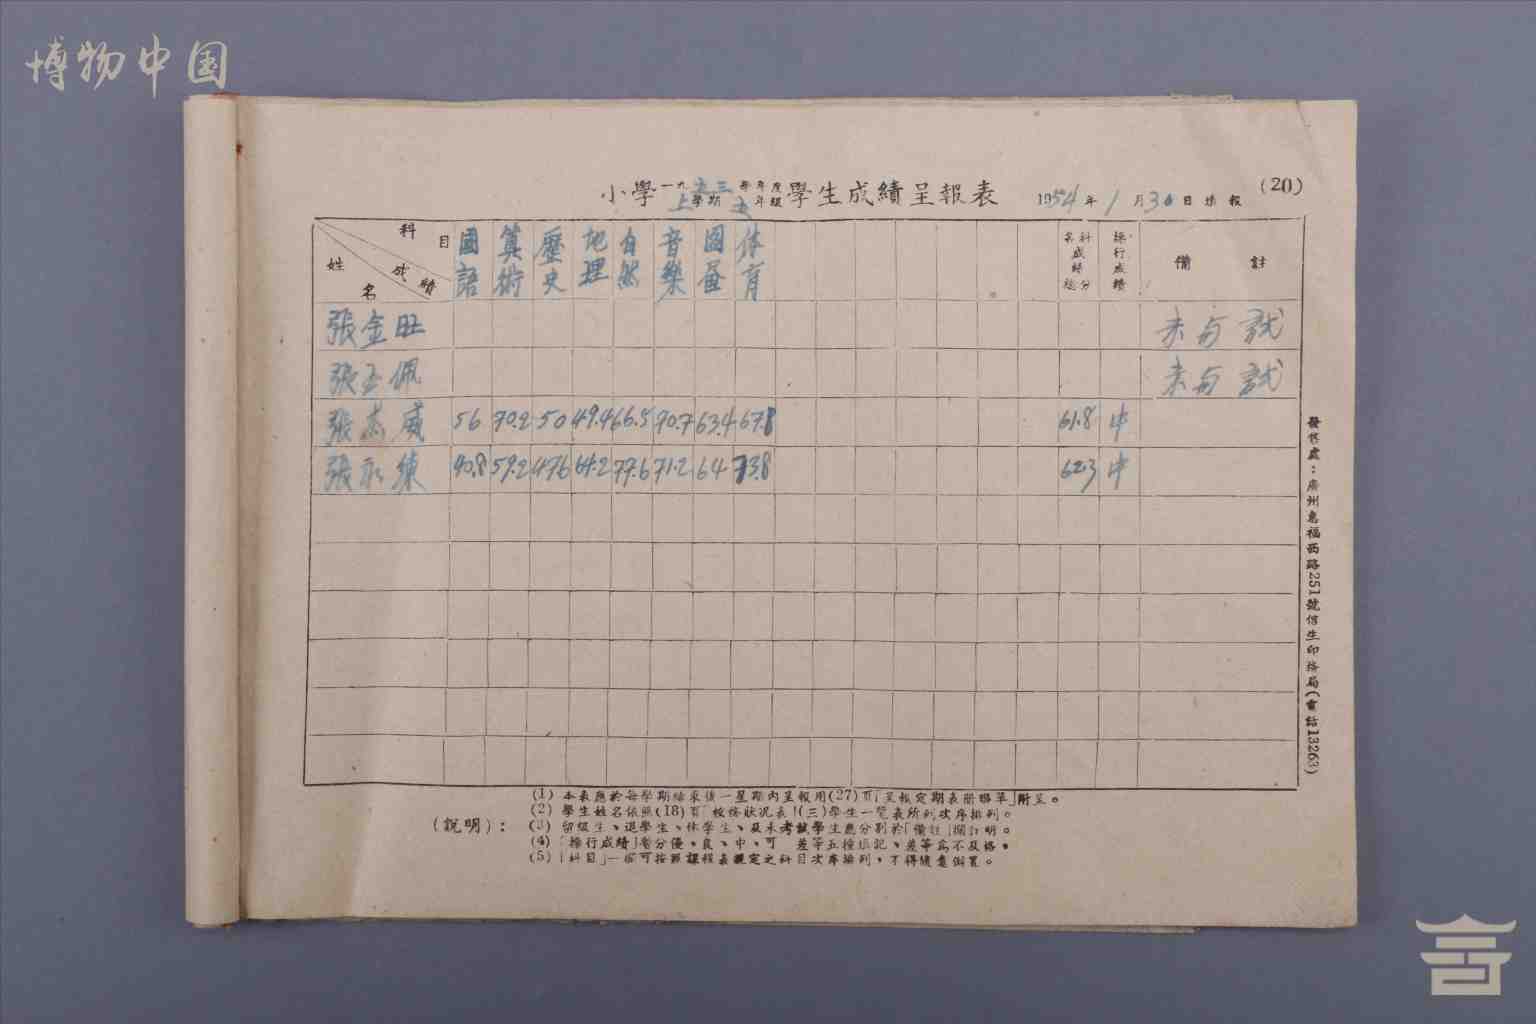 博物中国
(20)
小學一九五三學年度上學期五年級學生成績呈報表 1954年1月30日填報
科目 成績 姓名 國語 算術 歷史 地理 自然 音樂 圖畫 体育 各科成績總分 操行成績 備註
張金旺 未与試
張玉佩 未与試
張志威 56 70.2 50 49.4 66.5 90.7 63.4 67.8 61.8 中
張 練 40.8 59.2 47.6 64.2 77.6 71.2 64 73.8 62.3 中
發售處：廣州惠福西路251號信生印務局(電話13263)
(說明)：
(1) 本表應於每學期結束後一星期內呈報用(27)頁「呈報定期表冊聯單」附呈。
(2) 學生姓名依照(18)頁「校務狀況表」(三)學生一覽表所列次序排列。
(3) 留級生、退學生、休學生、及未考試學生應分別於「備註」欄註明。
(4) 「操行成績」暫分優、良、中、可 差等五種填記、差等為不及格。
(5) 「科目」一欄可按照課程表規定之科目次序編列，不得隨意倒置。